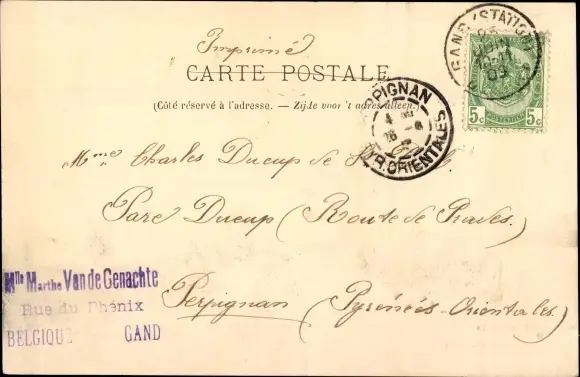 Imprimé
CARTE POSTALE
(Côté réservé à l'adresse. — Zijde voor 't adres alleen.)
GAND (STATION)
JUIN
5c 5c
PERPIGNAN
PYR. ORIENTALES
Mme Charles Ducup de
Parc Ducup (Route de Prades.)
Perpignan (Pyrénées-Orientales.)
Mlle Marthe Van de Genachte
Rue du Phénix
BELGIQUE GAND